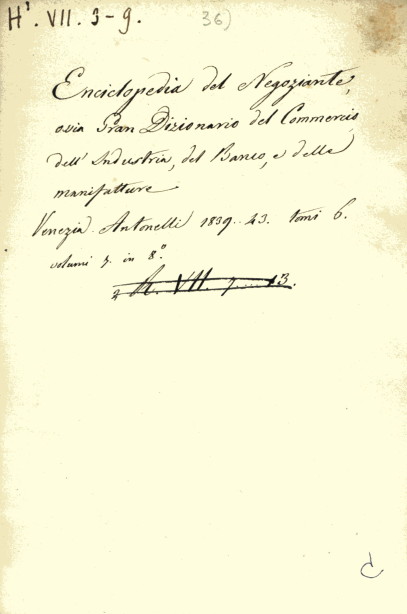 H¹. VII. 3-9. 36)
Enciclopedia del Negoziante,
ovvia Gran Dizionario del Commercio,
dell' Industria, del Banco, e delle
manifatture
Venezia. Antonelli 1839..43. tomi 6.
volumi 7. in 8.°
R. VII. 7......13.